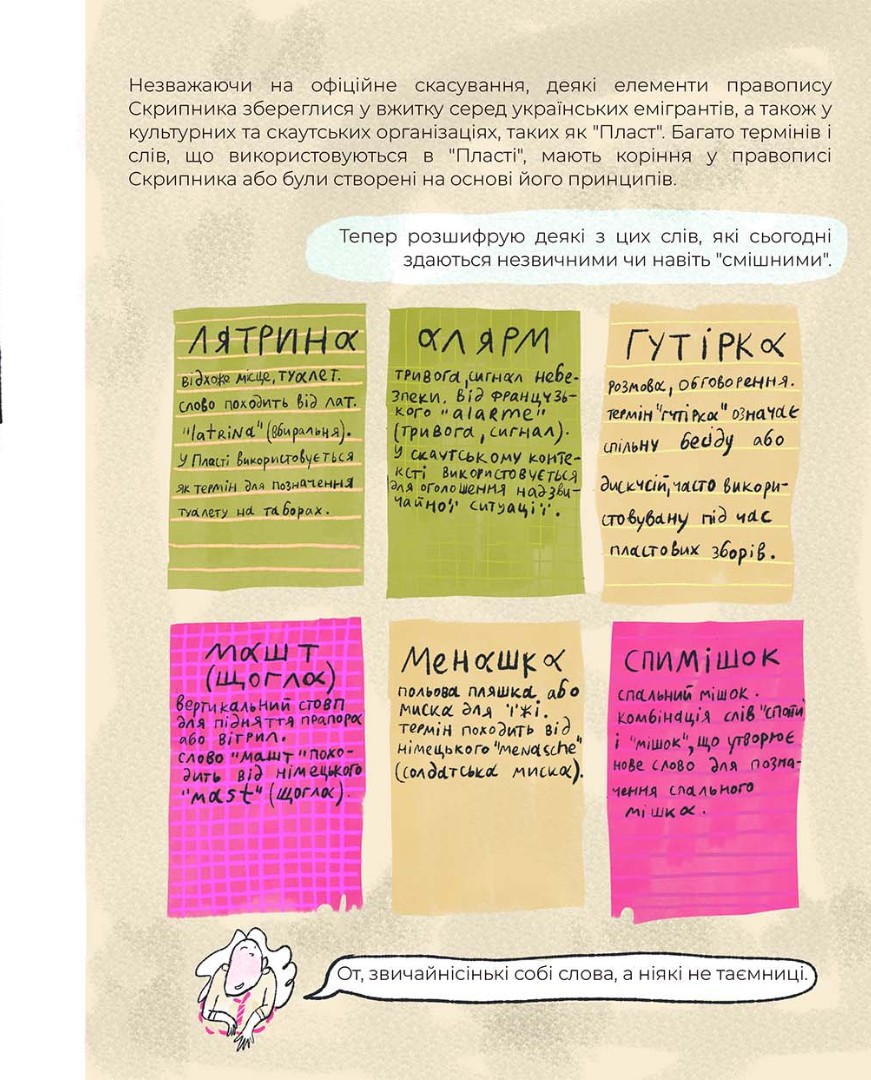 Незважаючи на офіційне скасування, деякі елементи правопису
Скрипника збереглися у вжитку серед українських емігрантів, а також у
культурних та скаутських організаціях, таких як "Пласт". Багато термінів і
слів, що використовуються в "Пласті", мають коріння у правописі
Скрипника або були створені на основі його принципів.
Тепер розшифрую деякі з цих слів, які сьогодні
здаються незвичними чи навіть "смішними".
ЛЯТРИНА
відхоже місце, туалет.
слово походить від лат.
"latrina" (вбиральня).
У Пласті використовується
як термін для позначення
туалету на таборах.
АЛЯРМ
тривога, сигнал небе-
зпеки. Від французь-
кого "alarme"
(тривога, сигнал).
У скаутському конте-
ксті використовується
для оголошення надзви-
чайної ситуації.
ГУТІРКА
розмова, обговорення.
термін "гутірка" означає
спільну бесіду або
дискусій, часто викори-
стовувану під час
пластових зборів.
МАШТ
(ЩОГЛА)
вертикальний стовп
для підняття прапора
або вітрил.
слово "машт" похо-
дить від німецького
"mast" (щогла).
МЕНАШКА
польова пляшка або
миска для їжі.
термін походить від
німецького "menasche"
(солдатська миска).
СПИМІШОК
спальний мішок.
комбінація слів "спати
і "мішок", що утворює
нове слово для позна-
чення спального
мішка.
От, звичайнісінькі собі слова, а ніякі не таємниці.